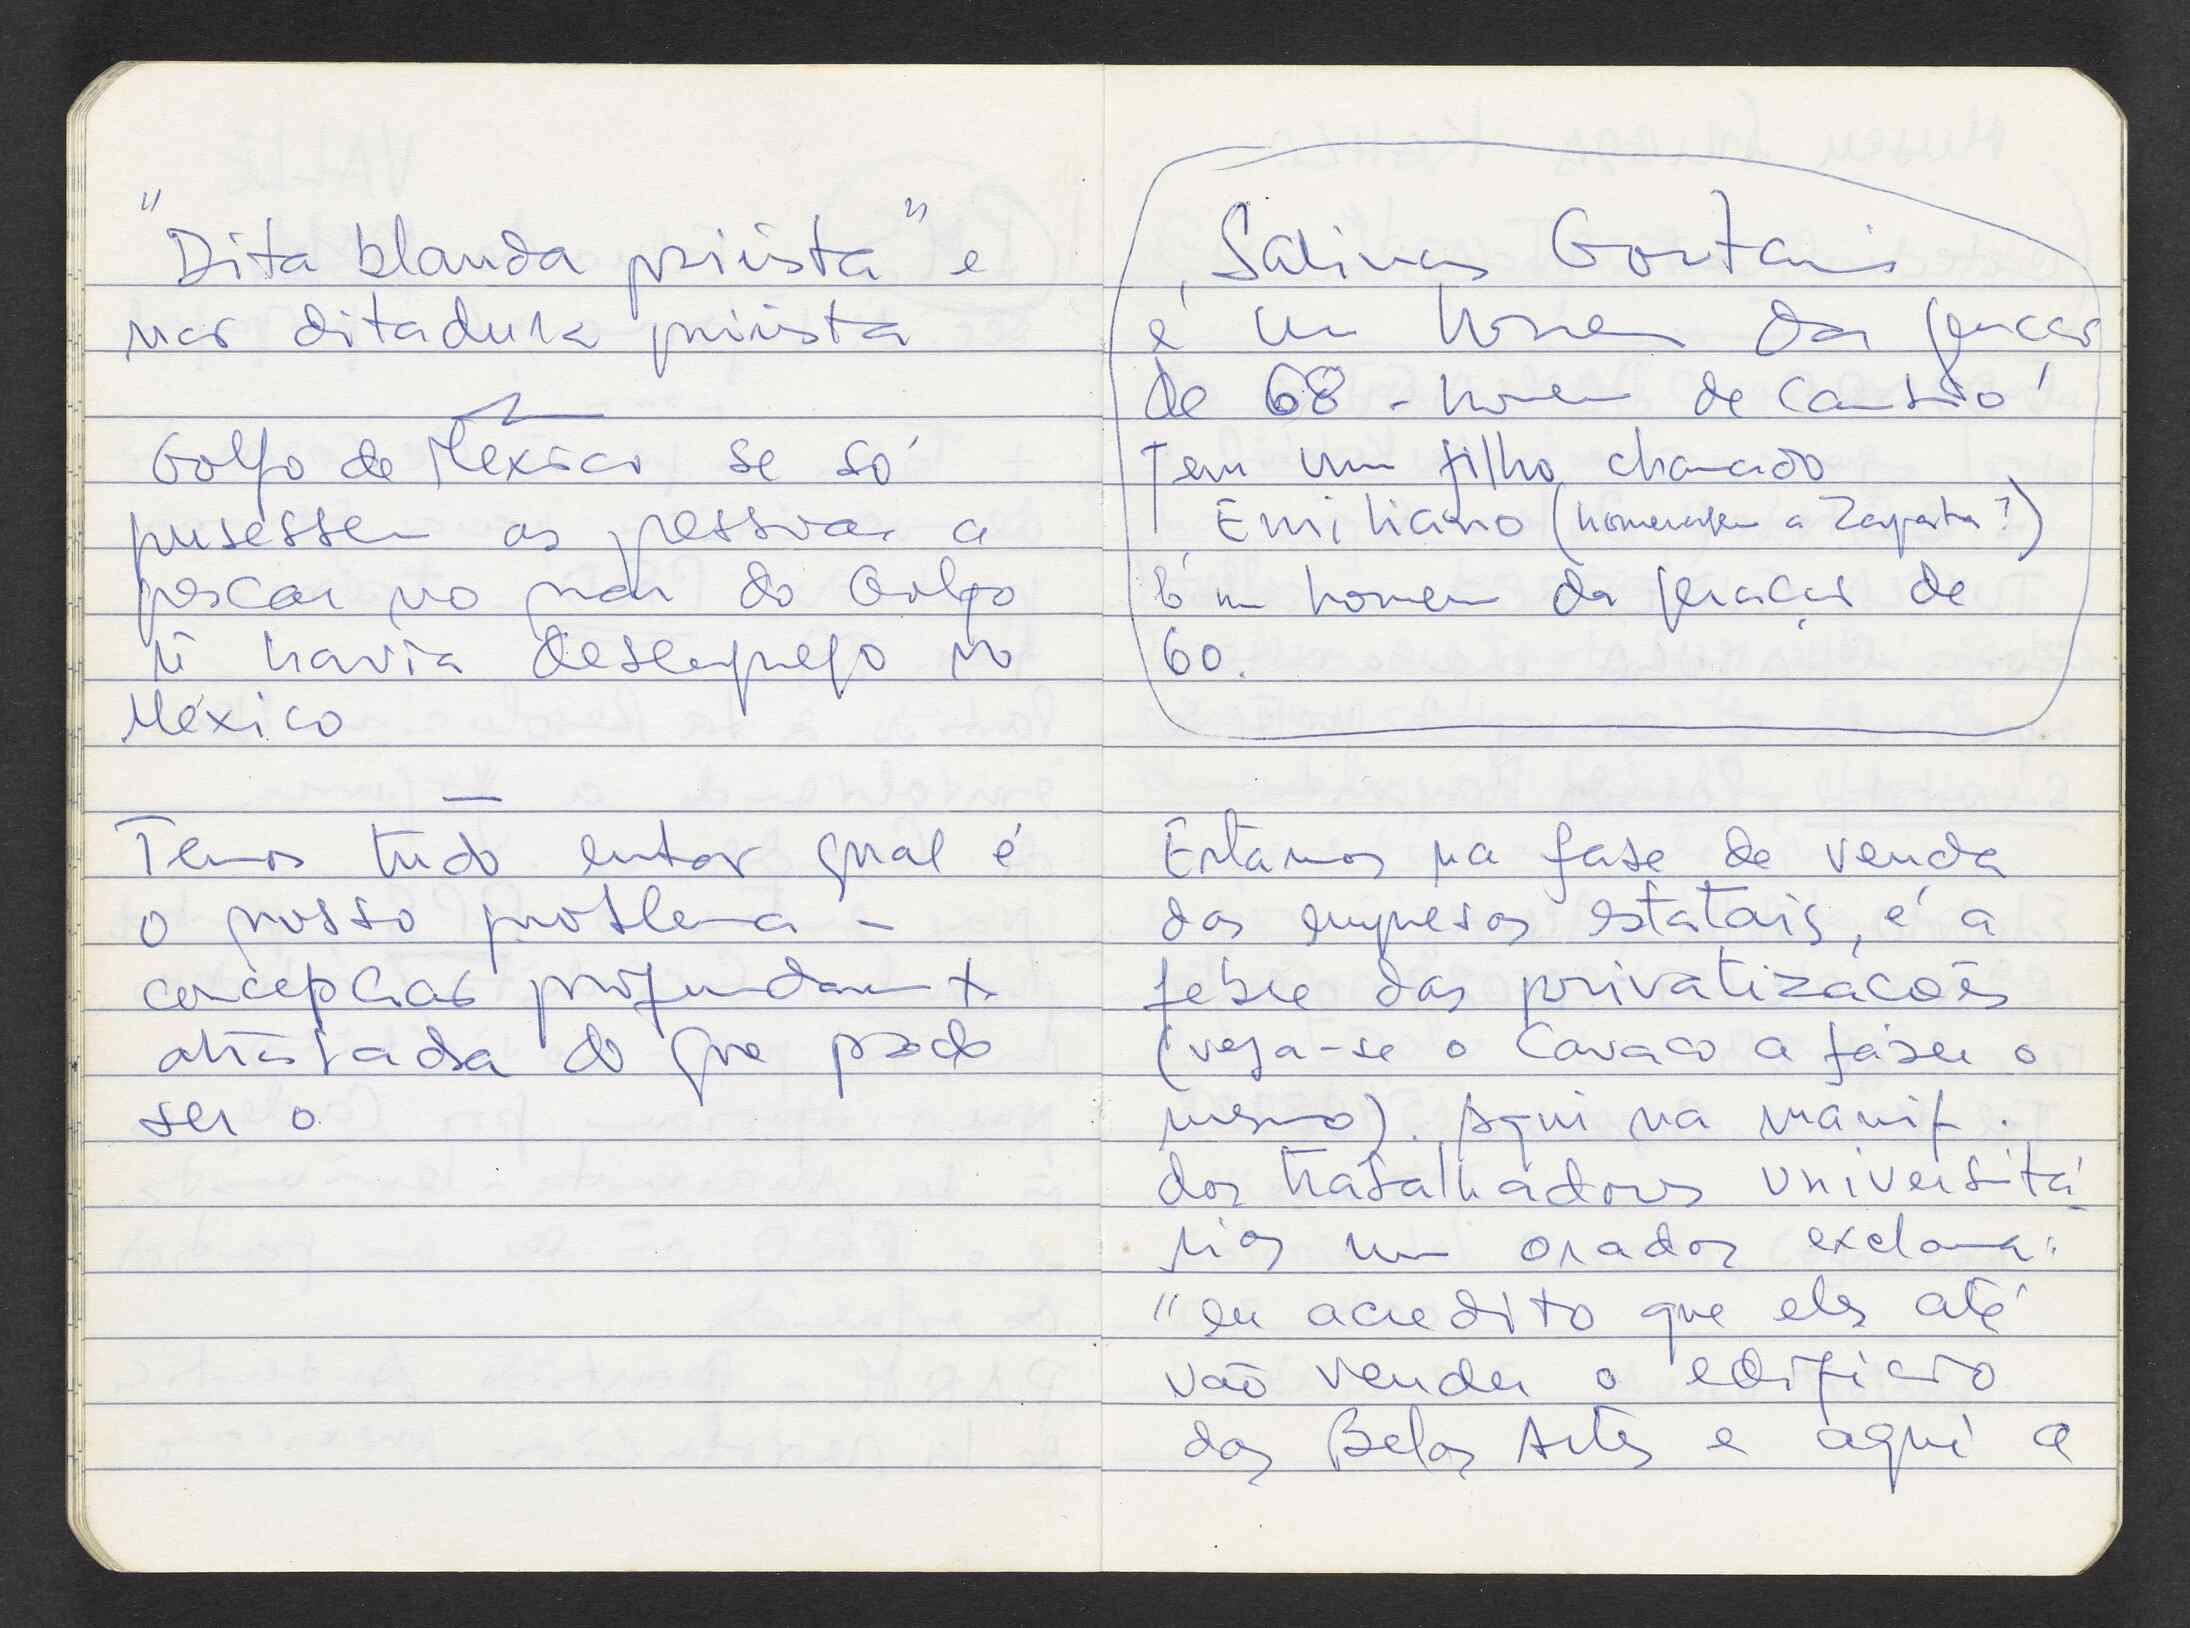 "Dita blanda priísta" e
não ditadura priísta
Golfo de México se só
pusessem as pessoas a
pescar no mar do Golfo
ñ havia desemprego no
México
Temos tudo então qual é
o nosso problema -
concepção profundam/
do que
ser o
Salinas Gortari
é um homem da geração
de 68 - homem de
Tem um filho chamado
Emiliano (homenagem a Zapata?)
É um homem da geração de
60.
Estamos na fase de venda
das empresas estatais, é a
febre das privatizacões
(veja-se o Cavaco a fazer o
mesmo). Aqui na manif.
dos trabalhadores universitá-
rios um orador exclama:
"eu acredito que eles até
vão vender o edificio
das Belas Artes e aqui a